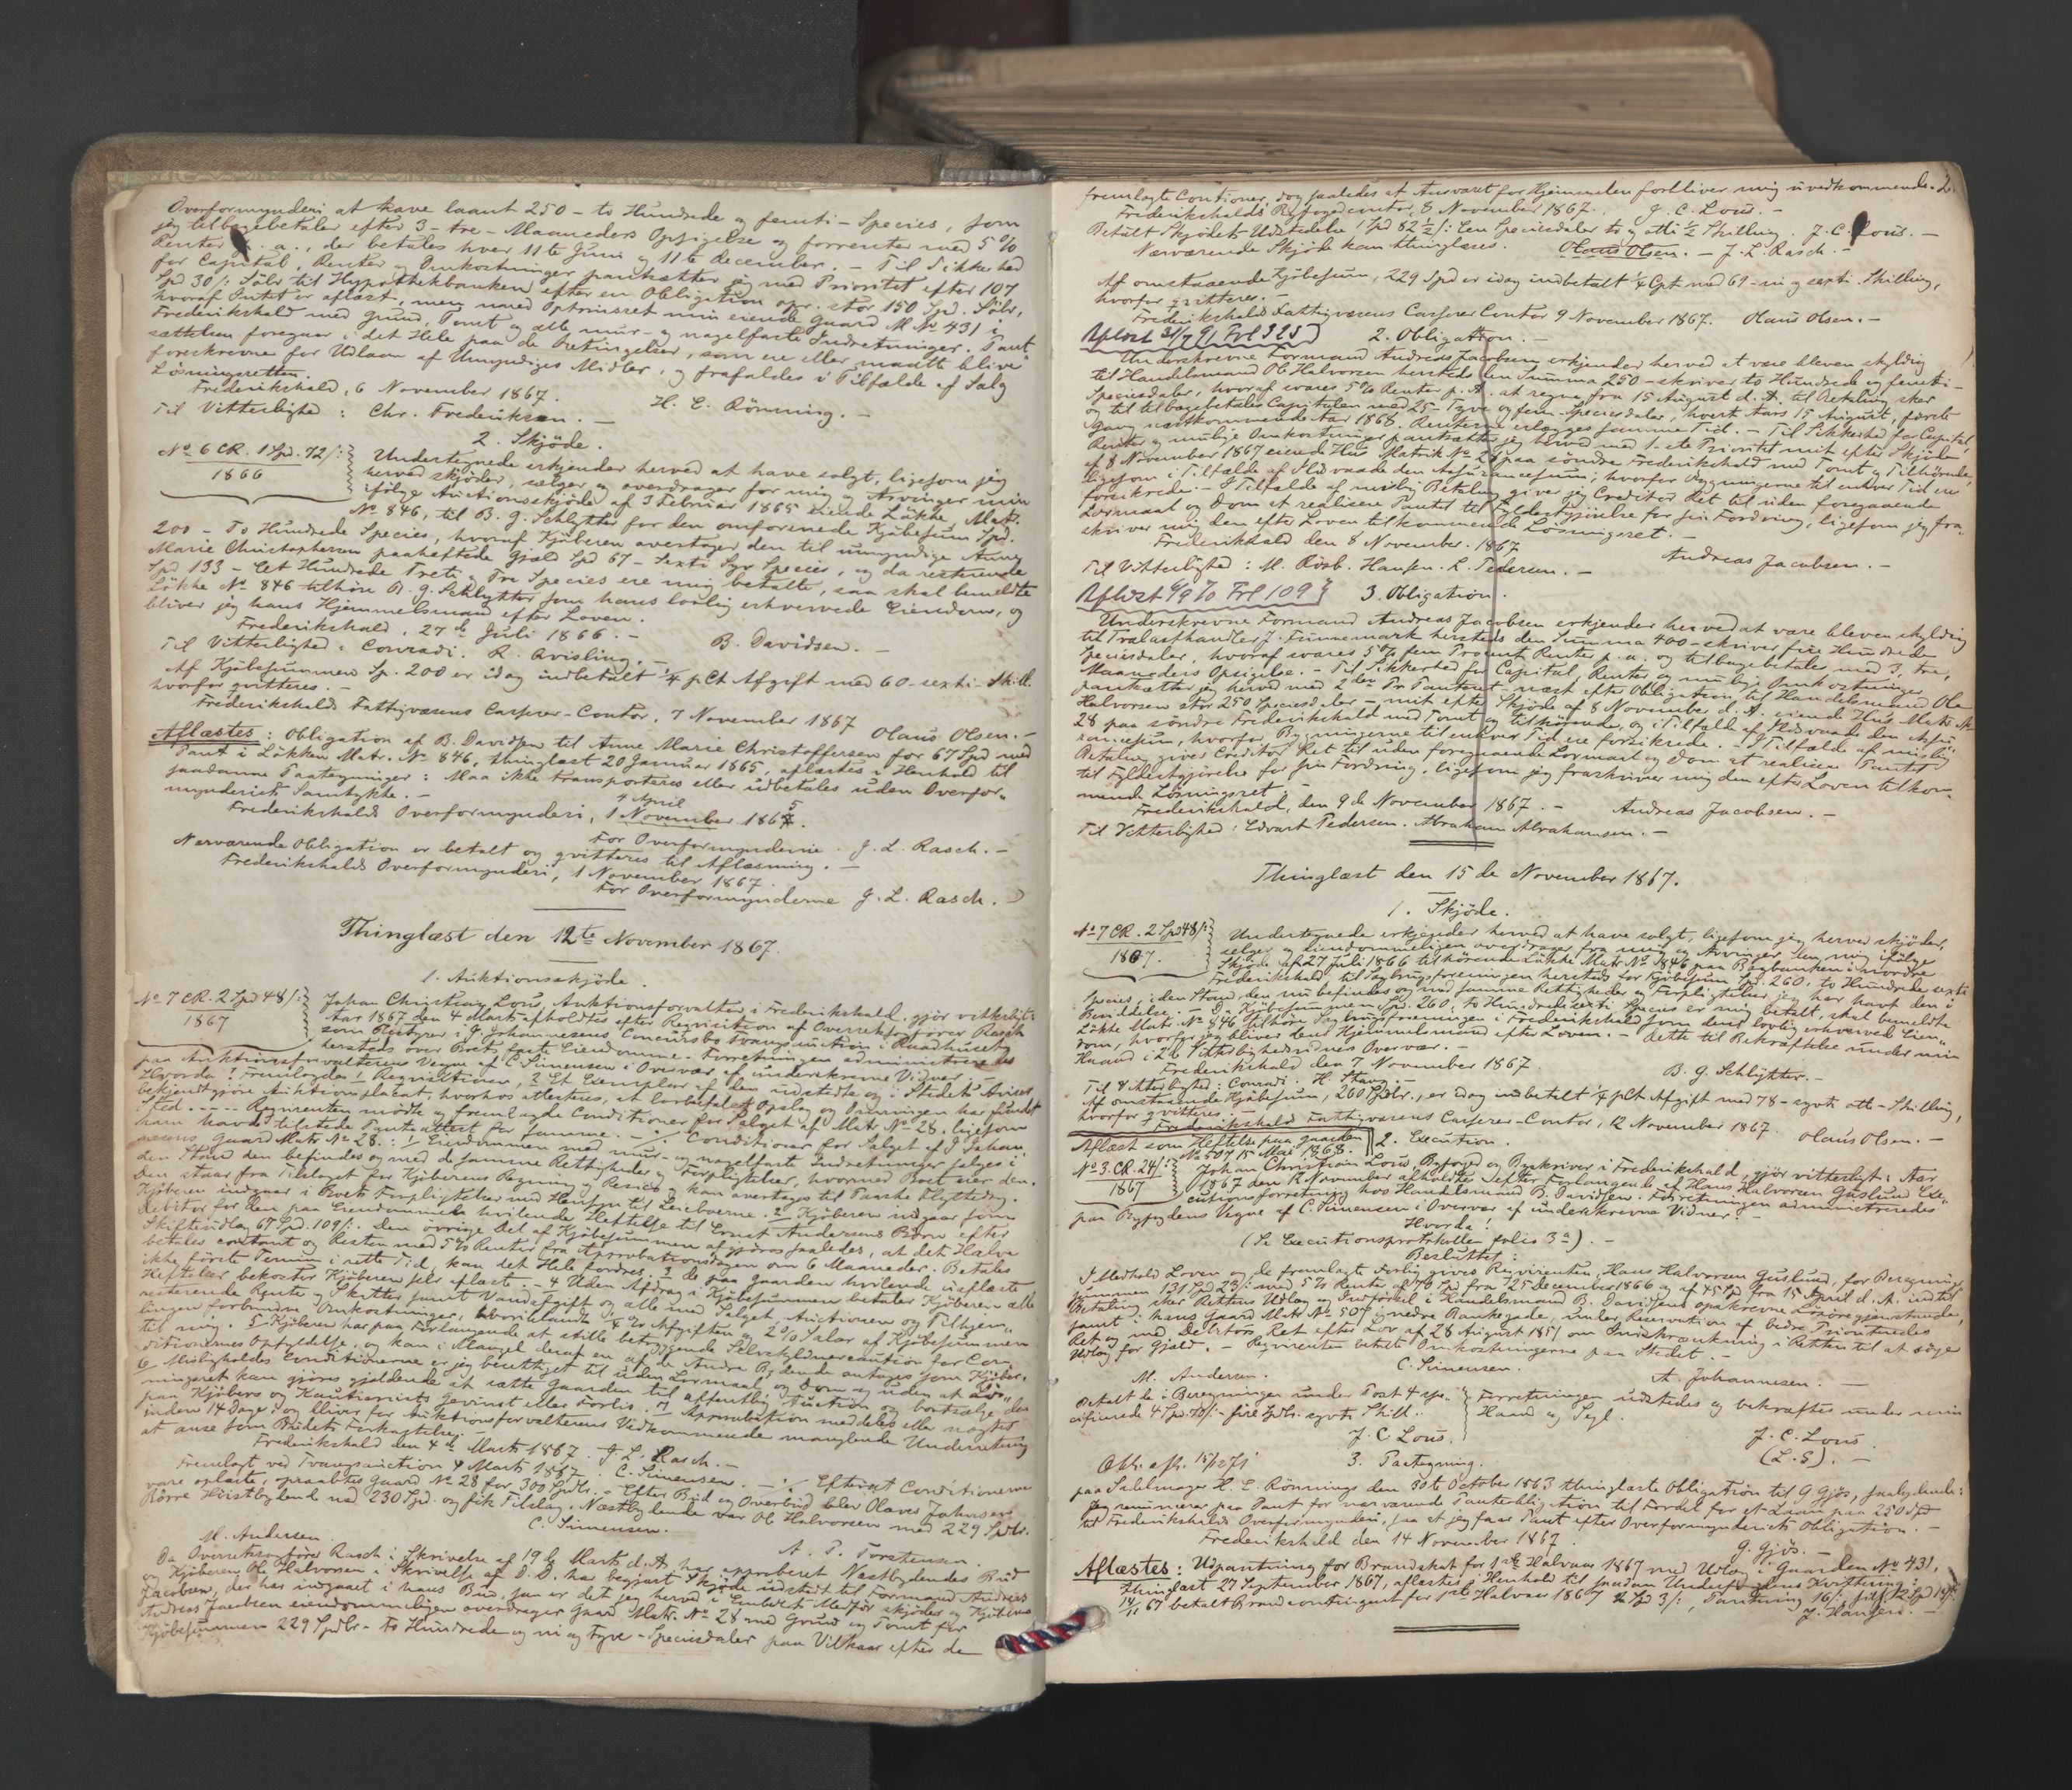 Overformynderi at have laant 250 - to Hundrede og femti - Species, som
jeg tilbagebetaler efter 3 - tre - Maaneders Opsigelse og forrenter med 5 %
Renter p. a., der betales hver 11te Juni og 11te December. - Til Sikkerhed
for Capital, Renter og Omkostninger pantsætter jeg med Prioritet efter 107
Spd 30 /: Sölv til Hypothekbanken efter en Obligation opr. stor 150 Spd. Sölv,
hvoraf Intet er aflæst, men med Optrinsret min eiende Gaard M No 431 i
Frederikshald med Grund, Tomt og alle mur- og nagelfaste Indretninger. Pant-
sættelsen foregaar i det Hele paa de Betingelser, som ere eller maatte blive
foreskrevne for Udlaan af Umyndiges Midler, og frafaldes i Tilfælde af Salg
Lösningsretten.
Frederikshald, 6 November 1867.
Til Vitterlighed: Chr. Frederiksen. - H. E. Rönning. -
2. Skjöde.
No 6 CR. 1 Spd. 72 /:
1866
Undertegnede erkjender herved at have solgt, ligesom jeg
herved skjöder, sælger og overdrager for mig og Arvinger min
ifölge Auctionsskjöde af 3 Februar 1865 eiende Lökke, Mat.
No 846, til B. G. Schlytter for den omforenede Kjöbesum Spd.
200 - To Hundrede Species, hvoraf Kjöberen overtager den til umyndige Anne
Marie Christophersen paaheftede Gjæld Spd 67 - Sexti Syv Species, og da resterende
Spd 133 - Et Hundrede Treti og Tre Species ere mig betalte, saa skal bemeldte
Lökke No 846 tilhöre B. G. Schlytter som hans lovlig erhvervede Eiendom, og
bliver jeg hans Hjemmelsmand efter Loven.
Frederikshald, 27de Juli 1866. -
Til Vitterlighed: Conradi. R. Qvisling. - B. Davidsen. -
Af Kjöbesummen Sp. 200 er idag indbetalt 1/4 pCt Afgift med 60 - sexti - Skill.
hvorfor qvitteres. -
Frederikshalds Fattigvæsens Casserer-Contor, 7 November 1867 Olaus Olsen. -
Aflæstes: Obligation af B. Davidsen til Anne Marie Christoffersen for 67 Spd med
Pant i Lökken Matr. No 846, thinglæst 20 Januar 1865, aflæstes i Henhold til
saadanne Paategninger: Maa ikke transporteres eller udbetales uden Overfor-
mynderiets Samtykke. -
4 April 5
Frederikshalds Overformynderi, 1 November 1867.
For Overformynderne J. L. Rasch. -
Nærværende Obligation er betalt og qvitteres til Aflæsning. -
Frederikshalds Overformynderi, 1 November 1867.
For Overformynderne J. L. Rasch.
Thinglæst den 12te November 1867.
1. Auktionsskjöde.
No 7 CR. 2 Spd 48 /:
1867
Johan Christian Lous, Auktionsforvalter i Frederikshald, gjör vitterligt:
Aar 1867 den 4 Marts afholdtes efter Reqvisition af Overretssagförer Rasch
som Bestyrer i J. Johannesens Concursbo Tvangsauction i Raadhuset
hersteds over Boets faste Eiendomme. Forretningen administreredes
paa Auktionsforvalterens Vegne af C. Simensen i Overvær af underskrevne Vidner. -
Hvorda! Fremlagdes 1 Reqvisitionen, 2 Et Exemplar af den udstedte og i Stedets Aviser
bekjendtgjorte Auktionsplacat, hvorhos attesteres, at lovbefalet Opslag og Omringen har fundet
Sted. ---- Reqvirenten mödte og fremlagde Conditioner for Salget af Matr. No 28. ligesom
han havde tilstede Panteattest for samme. - /: Conditioner for Salget af J. Johan-
nesens Gaard Matr No 28.: 1/ Eiendommen med mur- og nagelfaste Indretninger sælges i
den Stand den befindes og med de samme Rettigheder og Forpligtelser, hvormed Boet eier den.
Den staar fra Tilslaget for Kjöberens Regning og Resico og kan overtages til Paaske Flyttedag.
Kjöberen indgaar i Boets Forpligtelser med Hensyn til Leieboerne. 2 Kjöberen indgaar som
Debitor for den paa Eiendommen hvilende Heftelse til Ernst Andersens Börn efter
Skifteudlæg 67 Spd. 109 /:. Den övrige Del af Kjöbesummen afgjöres saaledes, at det Halve
betales contant og Resten med 5 % Renter fra Approbationsdagen om 6 Maaneder. Betales
ikke förste Termin i rette Tid, kan det Hele fordres. 3 De paa Gaarden hvilende uaflæste
Heftelser bekoster Kjöberen selv aflæst. - 4 Uden Afdrag i Kjöbesummen betaler Kjöberen alle
resterende Rente og Skatter samt Vandafgift og alle med Salget, Auctionen og Tilhjem-
lingen forbundne Omkostninger, hvoriblandt Afgiften og 2 % Salær af Kjöbesummen
til mig. 5 Kjöberen har paa Forlangende at stille betryggende Selvskyldnercaution for Con-
ditionernes Opfyldelse, og kan i Mangel deraf en af de Andre Bydende antages som Kjöber.
6 Misligholdes Conditionerne er jeg berettiget til uden Lovmaal og Dom og uden at Lös-
ningsret kan gjöres gjældende at sætte Gaarden til offentlig Auction og bortsælge den
paa Kjöbers og Kautionists Gevinst eller Forlis. 7 Approbation meddeles eller nægtes
inden 14 Dage og bliver for Auktionsforvalterens Vedkommende manglende Underretning
at anse som Budets Forkastelse. -
Frederikshald den 4de Marts 1867. J. L. Rasch. -
Fremlagt ved Tvangsauction 4 Marts 1867. C. Simensen. - :/. Efterat Conditionerne
vare oplæste, opraabtes Gaard No 28 for 300 Spdlr. - Efter Bud og Overbud blev Olaves Johnsen
Börre Höistbydende med 230 Spd. og fik Tilslag. Næstbydende var Ole Halvorsen med 229 Spdlr.
C. Simensen.
M. Andersen. A. P. Torstensen.
Da Overretssagförer Rasch i Skrivelse af 19de Marts d. A. har approberet Næstbydendes Bud
og Kjöberen Ole Halvorsen i Skrivelse af D. D. har begjært Skjöde udstedt til Formand Andreas
Jacobsen, der har indgaaet i hans Bud, saa er det jeg herved i Embeds Medför skjöder og
Andreas Jacobsen eiendommeligen overdrager Gaard Matr. No 28 med Grund og Tomt for
Kjöbesummen 229 Spdlr - to Hundrede og ni og tyve - Speciesdaler paa Vilkaar efter de
fremlagte Conditioner, dog saaledes at Ansvaret for Hjemmelen forbliver mig uvedkommende. 2.
Frederikshalds Byfogedcontor, 8 November 1867. J. C. Lous. -
Betalt Skjödets Udstedelse 1 Spd 82 1/2 /: Een Speciesdaler to og otti 1/2 Skilling. J. C. Lous. -
Nærværende Skjöde kan thinglæses. Olaus Olsen. - J. L. Rasch. -
Af omstaaende Kjöbesum, 229 Spd er idag indbetalt 1/4 Cpt med 69 - ni og sexti Skilling,
hvorfor qvitteres. -
Frederikshalds Fattigvæsens Casserer Contor 9 November 1867. Olaus Olsen. -
Aflæst 31/7 91. Fol 325
2. Obligation. -
Underskrevne Formand Andreas Jacobsen erkjender herved at være bleven skyldig
til Handelsmand Ole Halvorsen hersteds den Summa 250 - skriver to Hundrede og femti -
Speciesdaler, hvoraf svares 5 % Renter p. A. at regne fra 15 August d. A. til Betaling sker
og til tilbagebetales Capitalen med 25 - Tyve og fem - Speciesdaler, hvert Aars 15 August, förste
Gang næstkommende Aar 1868. Renterne erlægges samme Tid. - Til Sikkerhed for Capital,
Renter og mulige Omkostninger pantsætter jeg herved med 1ste Prioritet mit efter Skjöde
af 8 November 1867 eiende Hus Matrik No 28 paa söndre Frederikshald med Tomt og Tilhörende,
ligesom i Tilfælde af Ildsvaade den Assurancesum, hvorfor Bygningerne til enhver Tid ere
forsikrede. - I Tilfælde af mislig Betaling giver jeg Creditor Ret til uden foregaaende
Lovmaal og Dom at realisere Pantet til Fyldestgjörelse for sin Fordring, ligesom jeg fra-
skriver mig den efter Loven tilkommende Lösningsret. -
Frederikshald den 8 November. 1867
Til Vitterlighed: M. Rösb. Hansen. L. Pedersen. - Andreas Jacobsen. -
Aflæst 6/9 70 Fol 109
3. Obligation.
Underskrevne Formand Andreas Jacobsen erkjender herved at være bleven skyldig
til Trælasthandler J. Finnemark hersteds den Summa 400 - skriver fire Hundrede
Speciesdaler, hvoraf svares 5 % fem Procent Renter p. a. og tilbagebetales med 3, tre,
Maaneders Opsigelse. - Til Sikkerhed for Capital, Renter og mulige Omkostninger
pantsætter jeg herved med 2den Pr. Panteret - næst efter Obligation til Handelsmand Ole
Halvorsen stor 250 Speciesdaler - mit efter Skjöde af 8 November d. A. eiende Hus Matr. No
28 paa söndre Frederikshald med Tomt og tilhörende, og i Tilfælde af Ildsvaade den Assu-
rancesum, hvorfor Bygningerne til enhver Tid ere forsikrede. - I Tilfælde af mislig
Betaling giver Creditor Ret til uden foregaaende Lovmaal og Dom at realisere Pantet
til Fyldestgjörelse for sin Fordring, ligesom jeg fraskriver mig den efter Loven tilkom-
mende Lösningsret. -
Frederikshald, den 9de November 1867. - Andreas Jacobsen. -
Til Vitterlighed: Edvart Pedersen. Abraham Abrahamsen. -
Thinglæst den 15de November 1867.
1. Skjöde.
No 7 CR. 2 Spd 48 /:
1867.
Undertegnede erkjender herved at have solgt, ligesom jeg herved skjöder,
sælger og eiendommeligen overdrager fra mig og Arvinger den mig ifölge
Skjöde af 27 Juli 1866 tilhörende Lökke Matr No 846 paa Bybanken i nordre
Frederikshald til Sagbrugsforeningen hersteds for Kjöbesum Spd. 260, to Hundrede sexti
Species, i den Stand, den nu befindes og med samme Rettigheder og Forpligtelser jeg har havt den i
Besiddelse. - Da Kjöbesummen Spd. 260, to Hundrede sexti Species er mig betalt, skal bemeldte
Lökke Matr. No 846 tilhöre Sagbrugsforeningen i Frederikshald som dens lovlig erhverved Eien-
dom, hvorfor jeg bliver dens Hjemmelsmand efter Loven. - Dette til Bekræftelse under min
Haand i 2de Vitterlighedsvidners Overvær. -
Frederikshald den 7 November 1867
Til Vitterlighed: Conradi. H. Stang. - B. G. Schlytter. -
Af omstaaende Kjöbesum, 260 Spdlr., er idag indbetalt 1/4 pCt Afgift med 78 - syvti otte - Skilling,
hvorfor qvitteres. -
Frederikshalds Fattigvæsens Casserer-Contor, 12 November 1867. Olaus Olsen. -
Aflæst som Heftelse paa Gaarden
No 507 15 Mai 1868.
2. Execution.
No 3. CR. 24 /:
1867
Johan Christian Lous, Byfoged og Byskriver i Frederikshald, gjör vitterligt: Aar
1867 den 12 November afholdtes efter Forlangende af Hans Halvorsen Guslund Exe-
cutionsforretning hos Handelsmand B. Davidsen. Forretningen administreredes
paa Byfogdens Vegne af C. Simensen i Overvær af underskrevne Vidner. -
Hvorda!
(Se Executionsprotokollen folio 3a). -
Besluttet:
I Medhold Loven og de fremlagte Forlig gives Reqvirenten, Hans Halvorsen Guslund, for Beregnings-
summen 131 Spd 23 /: med 5 % Rente af 79 Spd fra 25 December 1866 og af 45 Spd fra 15 April d. A. indtil
Betaling sker Rettens Udlæg og Indförsel i Handelsmand B. Davidsens opskrevne Lösöregjenstande,
samt i hans Gaard Matr No 507 i nedre Bankegade, under Reservation af bedre Prioriteredes
Ret og med Debitors Ret efter Lov af 28 August 1851 om Indskrænkning i Retten til at söge
Udlæg for Gjæld. - Reqvirenten betalte Omkostningerne paa Stedet. -
C. Simensen.
M. Andersen. A. Johannesen. -
Betalt de i Beregningen under Post 4 spe-
cificerede 4 Spd. 70 /: - fire Spdlr. syvti Skill.
J. C. Lous.
Forretningen udstedes og bekræftes under min
Haand og Segl.
J. C. Lous
(L. S). -
Obl. afl. 15/12 71
3. Paategning.
paa Sadelmager H. E. Rönnings den 30te October 1863 thinglæste Obligation til G. Gjös, saalydende:
Jeg renuncerer paa Pant for nærværende Panteobligation til Fordel for et Laan paa 250 Spd
til Frederikshalds Overformynderi, saa at jeg faar Pant efter Overformynderiets Obligation. -
Frederikshald den 14 November 1867
G. Gjös. -
Aflæstes: Udpantning for Brandskat for 1ste Halvaar 1867 med Udlæg i Gaarden No 431,
thinglæst 27 September 1867, aflæstes i Henhold til saadan Kvittering:
14/11 67 betalt Brandcontingent for 1ste Halvaar 1867 2 Spd 3 /:, Pantning 16 /:
J. Hansen. -